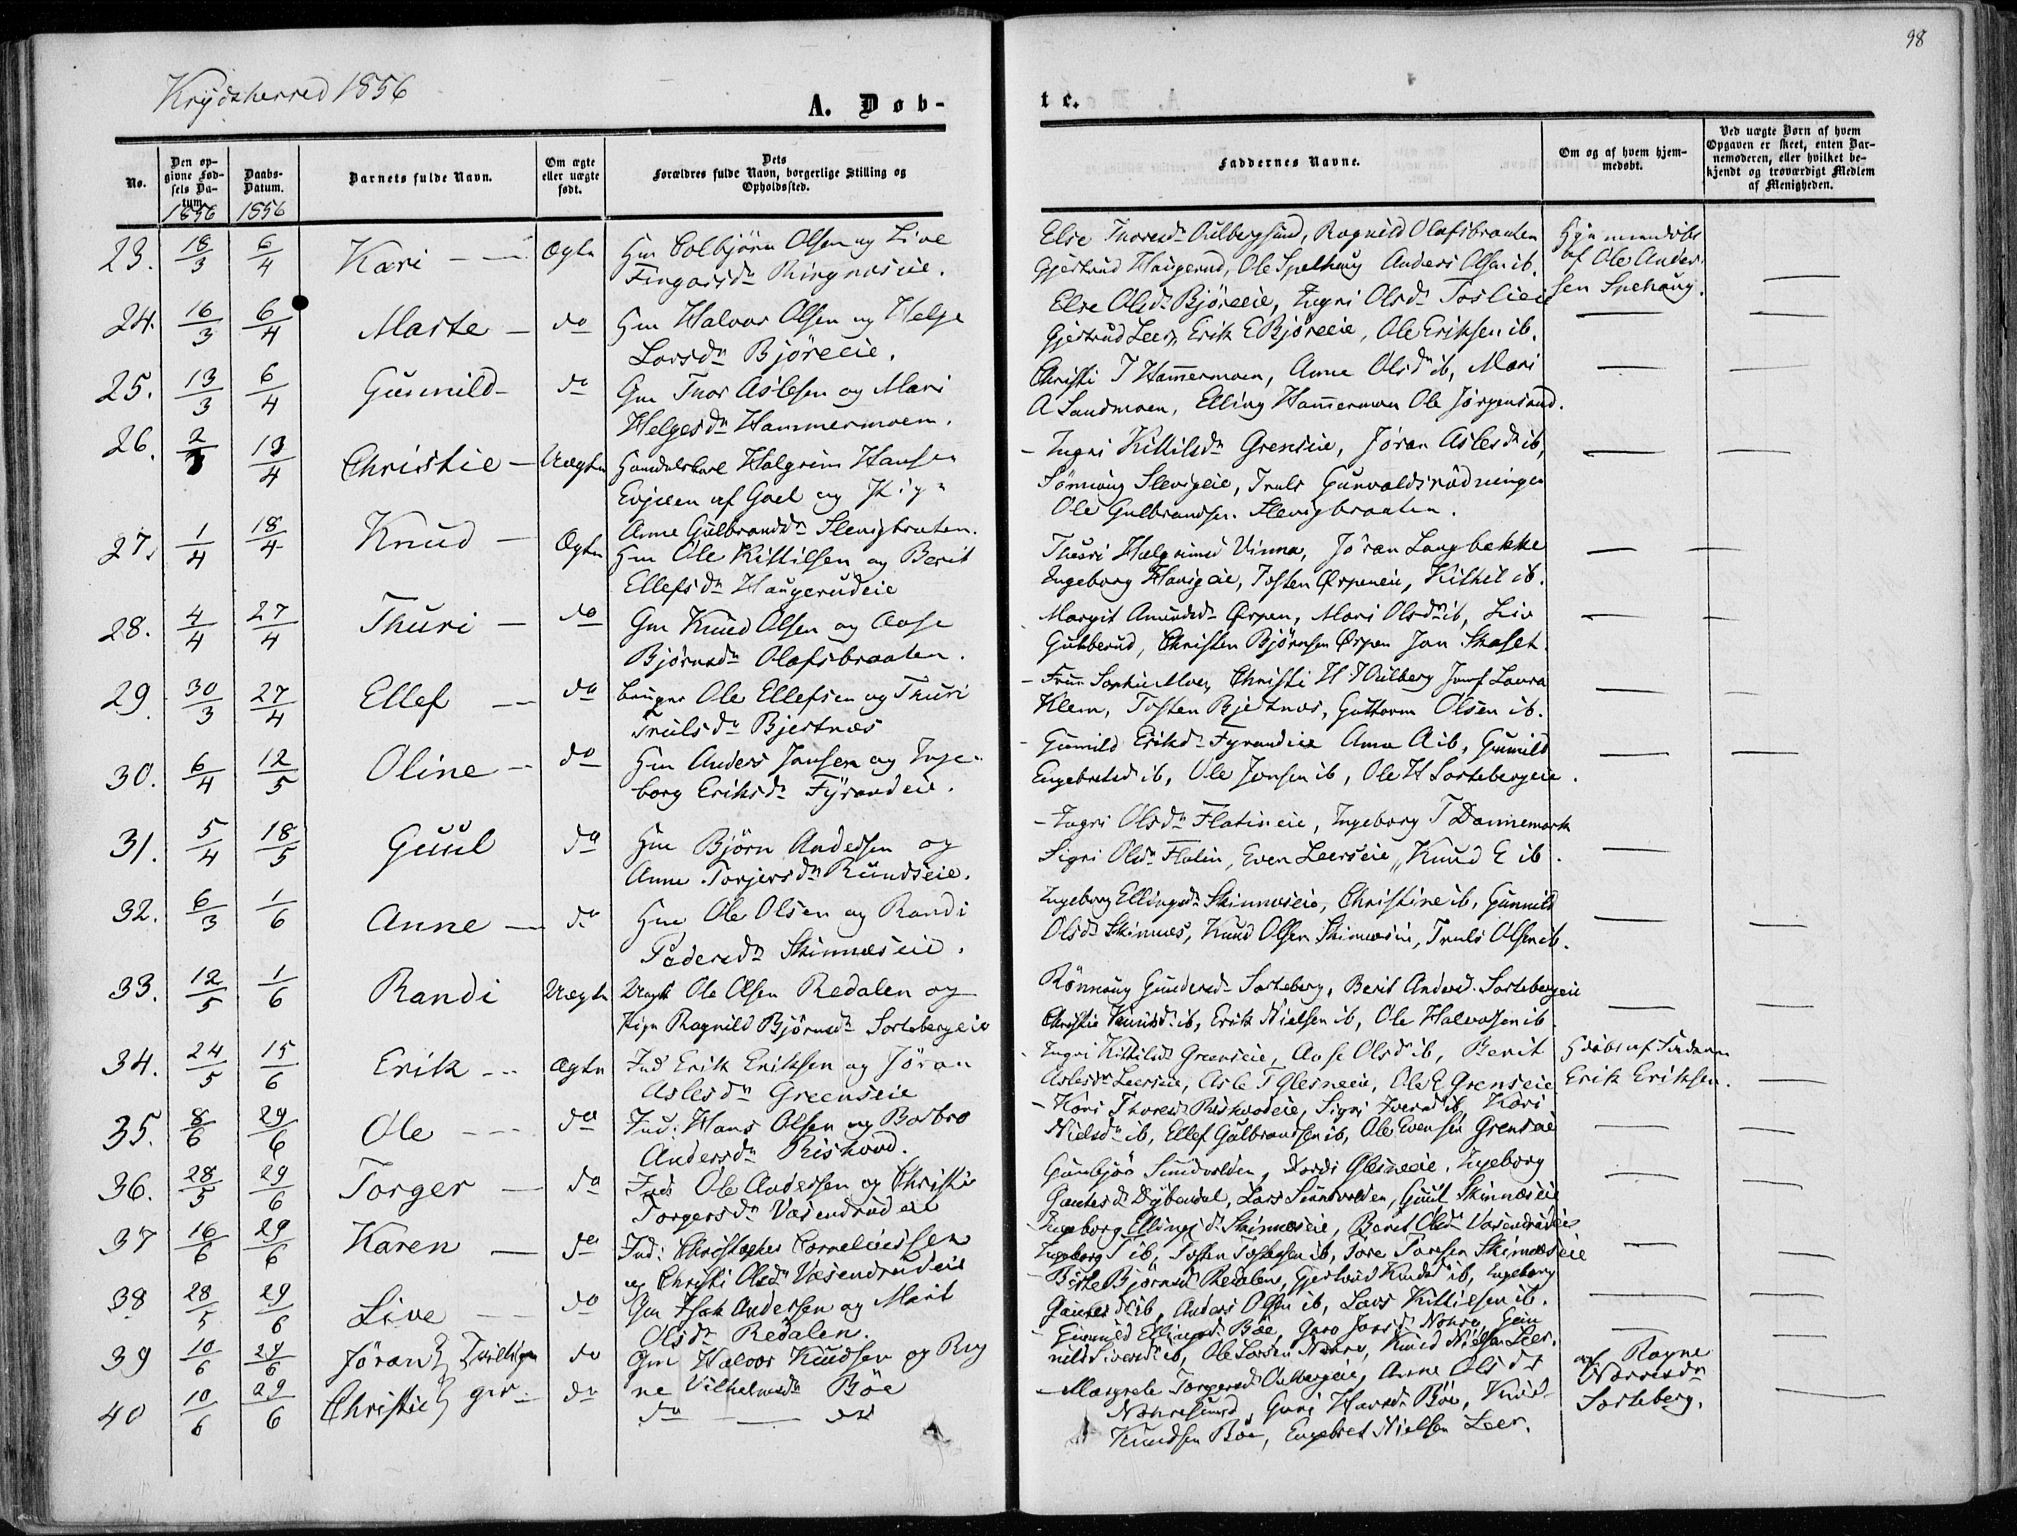 98
Krydsherred 1856
A. Døb-
te.
No.
Den op-
givne Fød-
sels Da-
tum.
1856
Daabs-
Datum.
1856
Barnets fulde Navn.
Om ægte
eller uægte
født.
Dets
Forældres fulde Navn, borgerlige Stilling og
Opholdssted.
Faddernes Navne.
Om og af hvem hjem-
medøbt.
Ved uægte Børn af hvem
Opgaven er skeet, enten Bar-
nemoderen, eller hvilket be-
kjendt og troværdigt Medlem
af Menigheden.
23. 18/3 6/4 Kari Ægte Hm Colbjörn Olsen og Live
Fingarsdr Ringnæseie.
Else Thoresdr Ragnild Olafsbraaten
Gjertrud Haugerud, Ole Spelhaug Anders Olsen ib.
af Ole Ander-
sen Spehaug.
24. 16/3 6/4 Marte do Hm Halvor Olsen og Helge
Larsdr Björeeie.
Else Olsdr Björeeie, Ingri Olsdr
Gjertrud Leer, Erik E Björeeie, Ole Eriksen ib.
25. 13/3 6/4 Gunnild do Gm Thor Aslesen og Mari
Helgesdr Hammermoen.
Christi T Hamermoen, Anne Olsdr ib, Mari
A Sandmoen, Elling Hamermoen Ole Jörgensrud.
26. 2/3 13/4 Christie Uægte Halgrim Hansen
af Goel og Pige
Anne Gulbrandsdr Slevigbraaten.
Ingri Kittilsdr Grenseie, Jöran Aslesdr ib,
Slevigeie, Truls
Ole Gulbrandsen Slevigbraaten.
27. 1/4 18/4 Knud Ægte Hm Ole Kittilsen og Berit
Ellefsdr Haugerudeie
Thuri Halgrimsd Vinna, Jöran Langbakke
Ingeborg Tosten Kittil ib.
28. 4/4 27/4 Thuri do Gm Knud Olsen og Aase
Björnsdr Olafsbraaten.
Margit Amundsdr Ørpen, Mari Olsdr ib, Liv
Gubberud, Christen Björnsen Ørpen Jon Skaset.
29. 30/3 27/4 Ellef do Bruger Ole Ellefsen og Thuri
Trulsdr Bjertnæs
Fru Sophie Moe, Christi H Jomf Laura
Klem, Tosten Bjertnæs, Guttorm Olsen ib.
30. 6/4 12/5 Oline do Hm Anders Jonsen og Inge-
borg Eriksdr Fyrandeie.
Gunild Eriksdr Fyrandeie Anne A ib, Gunild
Engebretsd ib, Ole Jonsen ib, Ole H Sortebergeie.
31. 5/4 18/5 Guul do Hm Björn Andersen og
Anne Torjersdr Rundseie.
Ingri Olsdr Flatineie, Ingeborg T Dannemark
Sigri Olsdr Flatin, Even Leerseie, Knud E ib.
32. 6/3 1/6 Anne do Hm Ole Olsen og Randi
Pedersdr Skinnæseie.
Ingeborg Ellingsdr Skinnæseie, Christine ib, Gunnild
Olsdr Skinnæs, Knud Olsen Skinnæseie, Truls Olsen ib.
33. 12/5 1/6 Randi Uægte Ungk Ole Olsen Redalen og
Pige Ragnild Björnsdr Sortebergeie
Rönnaug Gundersdr Sorteberg, Berit Andersd Sortebergeie
Christie Knudsdr ib, Erik Nielsen ib, Ole Halvorsen ib
34. 24/5 15/6 Erik Ægte Ind Erik Eriksen og Jöran
Aslesdr Greenseie
Ingri Kittilsdr Greenseie, Aase Olsdr ib, Berit
Aslesdr Leerseie, Asle T Glesneeie, Ole E Grenseie
Hdöbt af Faderen
Erik Eriksen.
35. 8/6 29/6 Ole do Ind. Hans Olsen og Barbro
Andersdr Riskovd.
Kari Thoresdr Sigri Iversdr ib, Kari
Nielsdr ib, Ellef Gulbrandsen ib, Ole Evensen Grenseie
36. 28/5 29/6 Torger do Ind. Ole Andersen og Christi
Torgersdr Væsendrudeie
Gunbjör Sundvolden, Dordi Glesneeie, Ingeborg
Gautesdr Dybendal, Lars Sundvolden, Guul Skinnæseie
37 16/6 29/6 Karen do Ind: Christopher Corneliussen
og Christi Olsdr Væsendrudeie
Ingeborg Ellingsdr Skinnæseie, Berit Olsdr Væsendrudeie
Ingeborg T ib, Tosten Tostensen ib, Tore Toresen Skinnæseie
38 28/5 29/6 Live do Gm Isak Andersen og Marit
Olsdr Redalen.
Björnsdr Redalen, Gjertrud Knudsdr ib, Ingeborg
Gautesdr ib, Anders Olsen ib, Lars Kittilsen ib.
39 10/6 29/6 Jöran } Tvillinger do Gm Halvor Knudsen og Rag-
ne Vilhelmsdr Böe
Gunnild Ellingsdr Böe, Guro Jonsdr Nohre, Gun-
nild Siversdr ib, Ole Larsen Nohre, Knud Nielsen Leer.
40 10/6 29/6 Christie } do do do
Margrete Torgersdr Anne Olsdr
Nohresund, Guri Hansdr Böe, Knud
Knudsen Böe, Engebret Nielsen Leer.
af Ragne
Sorteberg.